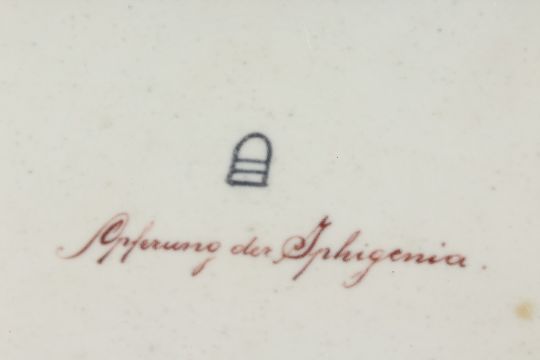 Opferung der Iphigenia.